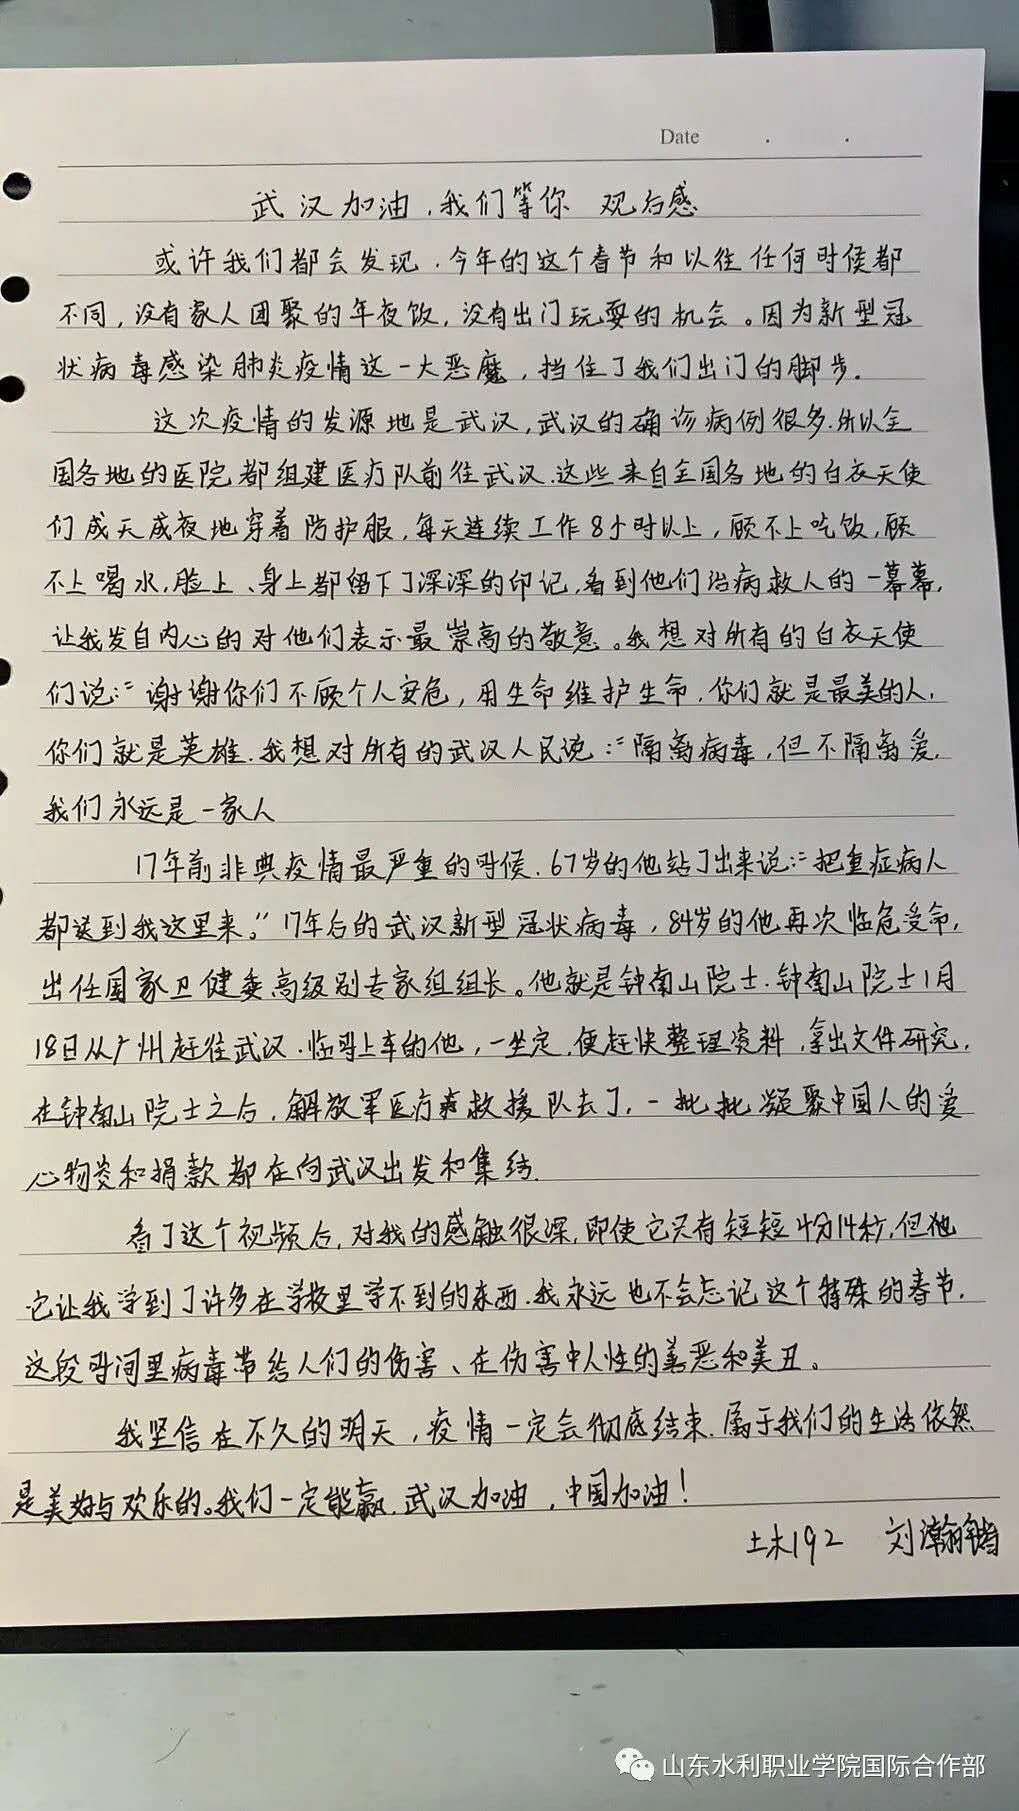 Date . .
武汉加油，我们等你 观后感
或许我们都会发现，今年的这个春节和以往任何时候都
不同，没有家人团聚的年夜饭，没有出门玩耍的机会。因为新型冠
状病毒感染肺炎疫情这一大恶魔，挡住了我们出门的脚步.
这次疫情的发源地是武汉，武汉的确诊病例很多.所以全
国各地的医院都组建医疗队前往武汉.这些来自全国各地的白衣天使
们成天成夜地穿着防护服，每天连续工作8小时以上，顾不上吃饭，顾
不上喝水，脸上、身上都留下了深深的印记，看到他们治病救人的一幕幕，
让我发自内心的对他们表示最崇高的敬意。我想对所有的白衣天使
们说:“谢谢你们不顾个人安危，用生命维护生命，你们就是最美的人，
你们就是英雄.我想对所有的武汉人民说:“隔离病毒，但不隔离爱，
我们永远是一家人
17年前非典疫情最严重的时候，67岁的他站了出来说:“把重症病人
都送到我这里来。”17年后的武汉新型冠状病毒，84岁的他再次临危受命，
出任国家卫健委高级别专家组组长。他就是钟南山院士.钟南山院士1月
18日从广州赶往武汉.临时上车的他，一坐定，便赶快整理资料，拿出文件研究，
在钟南山院士之后，解放军医疗救援队去了，一批批凝聚中国人的爱
心物资和捐款都在向武汉出发和集结.
看了这个视频后，对我的感触很深，即使它只有短短4分14秒，但他
它让我学到了许多在学校里学不到的东西.我永远也不会忘记这个特殊的春节，
这段时间里病毒带给人们的伤害、在伤害中人性的善恶和美丑。
我坚信在不久的明天，疫情一定会彻底结束.属于我们的生活依然
是美好与欢乐的。我们一定能赢.武汉加油，中国加油！
土木192 刘瀚锴
山东水利职业学院国际合作部